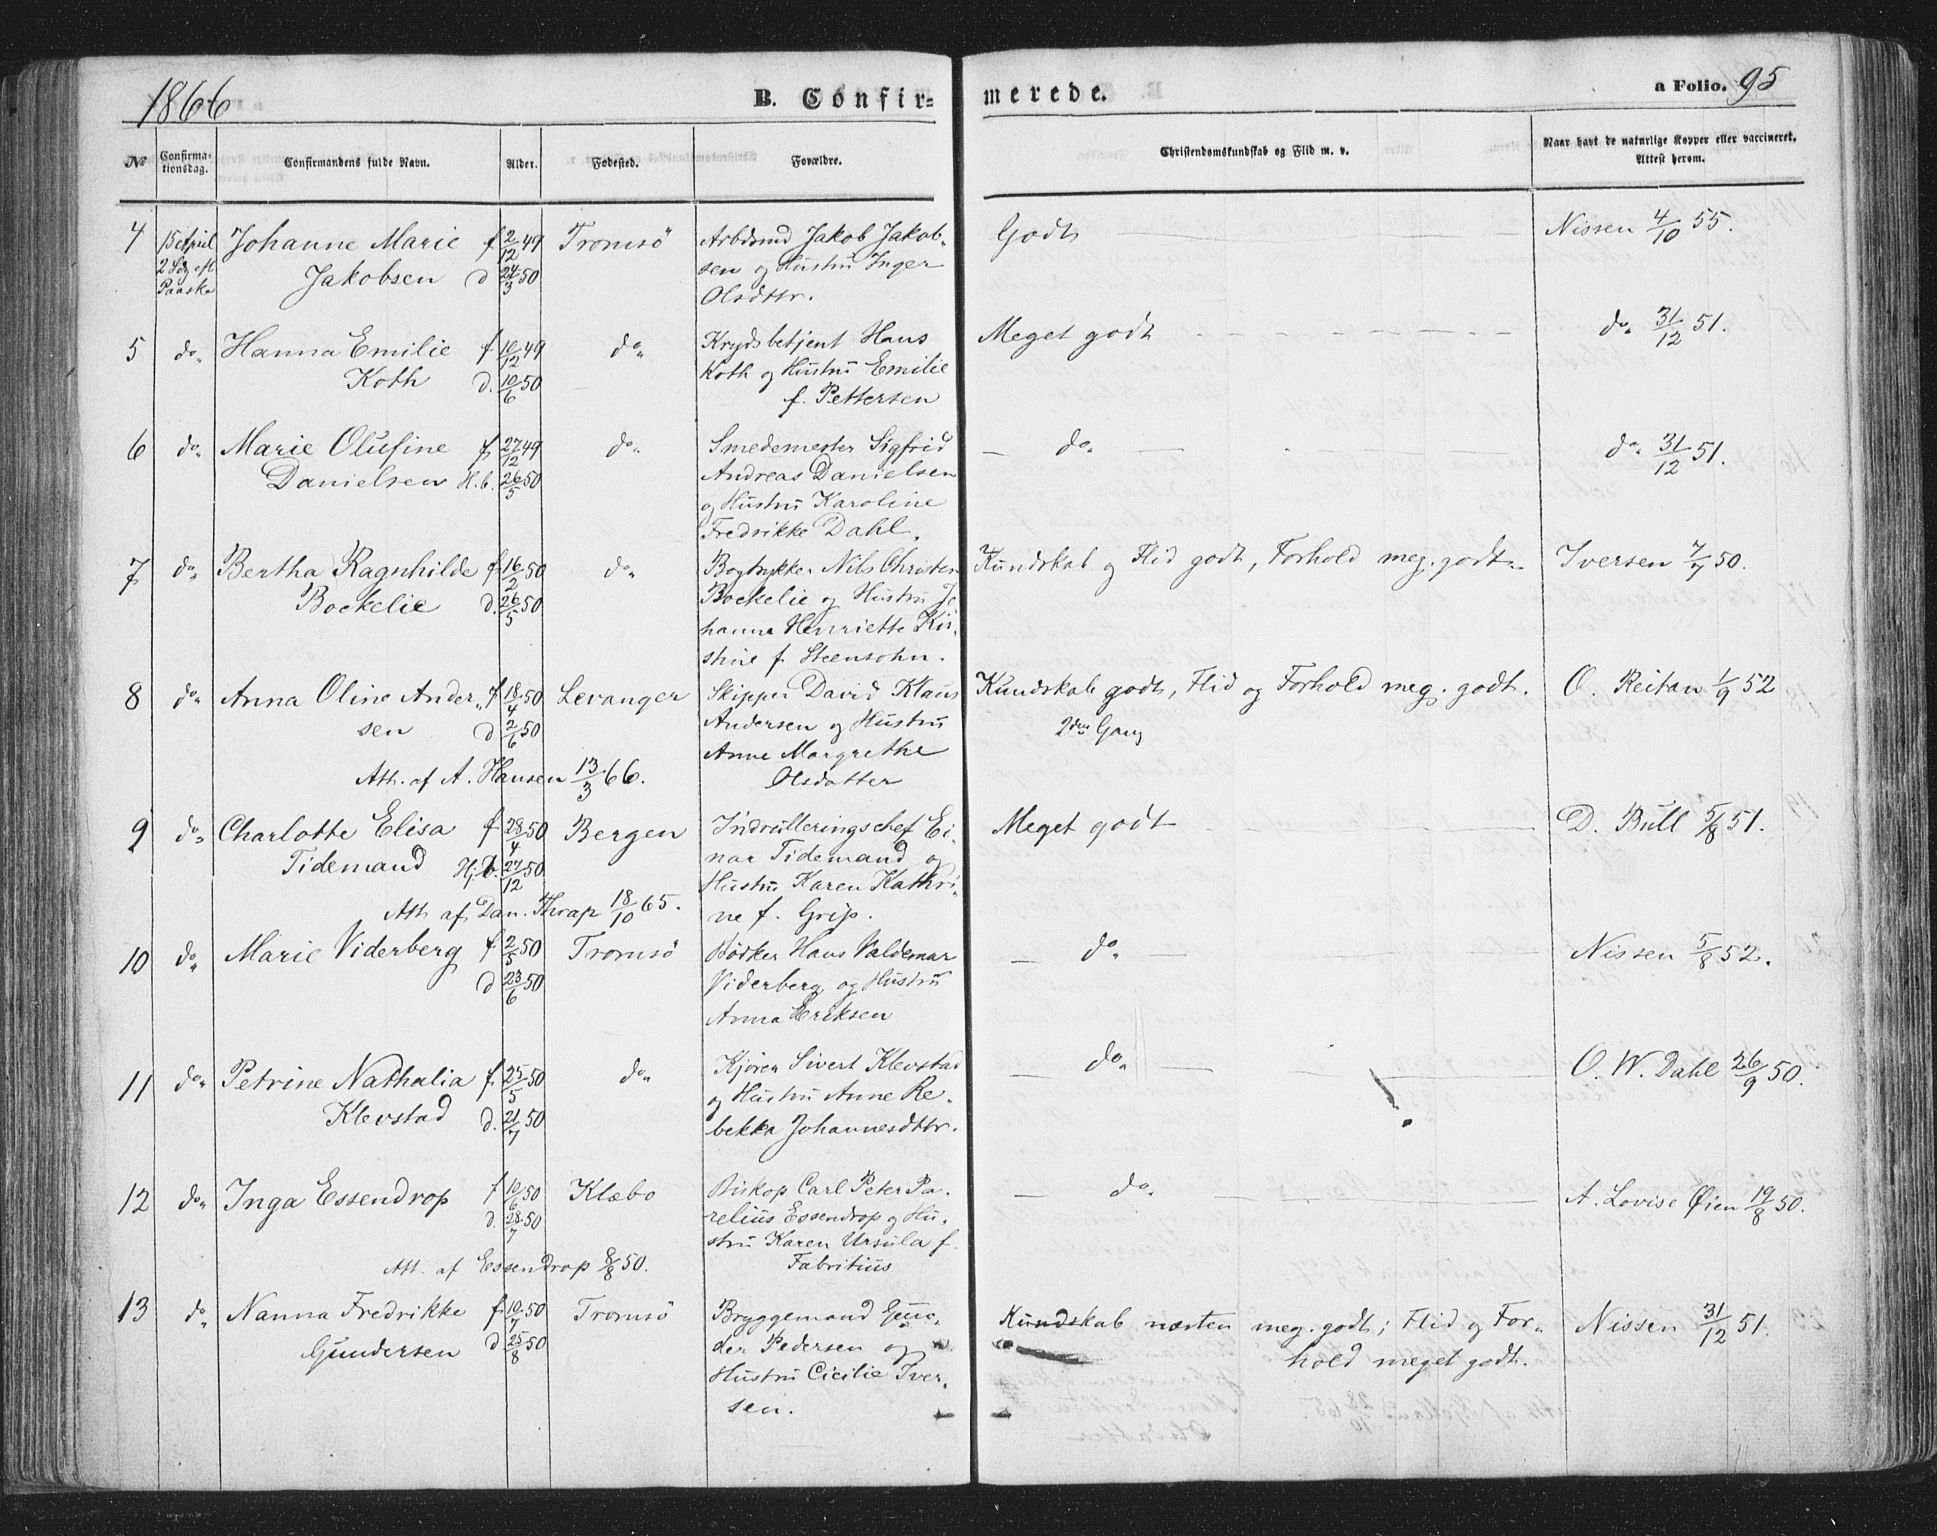 1866 B. Confir- merede. a Folio. 95
No Confirma-tionsdag. Confirmandens fulde Navn. Alder. Fodested. Forældre. Christendomskundskab og Flid m. v. Naar havt de naturlige Kopper eller vaccineret. Attest herom.
4 15 April Johanne Marie f 2/12 49 Tromsö Arbdsmd Jakob Jakob- Godt Nissen 4/10 55.
2 Søg eft Paaske Jakobsen d 24/3 50 sen og Hustru Inger
Olsdttr.
5 do Hanna Emilie f 10/12 49 do Krydsbetjent Hans Meget godt do 31/12 51.
Koth d. 10/6 50 Koth og Hustru Emilie
f. Pettersen
6 do Marie Olufine f 27/12 49 do Smedemester Sigfrid do do 31/12 51.
Danielsen H.b. 26/5 50 Andreas Danielsen
og Hustru Karoline
Fredrikke Dahl.
7 do Bertha Ragnhilde f 16/2 50 do Bogtrykker Nils Christen Kundskab og Flid godt, Forhold meg. godt Iversen 7/7 50.
Bockelie d. 26/5 50 Bockelie og Hustru Jo
hanna Henriette Kir-
stine f. Steensohn.
8 do Anna Oline Ander- f 18/4 50 Levanger Skipper David Klaus Kundskab godt, Flid og Forhold meg. godt. O. Reitan 1/9 52
sen d 2/6 50 Andersen og Hustru 2den Gang
Anne Margrethe
Att. af A. Hansen 13/3 66. Olsdatter
9 do Charlotte Elisa f 28/4 50 Bergen Indrulleringschef Ei- Meget godt D. Bull 5/8 51.
Tidemand Hj.b. 27/12 50 nar Tidemand og
Hustru Karen Kathri-
Att af Dan. Thrap 18/10 65. ne f. Grip.
10 do Marie Viderberg f 2/5 50 Tromsö Bödker Hans Valdemar do Nissen 5/8 52.
d 23/6 50 Viderberg og Hustru
Anna Eriksen
11 do Petrine Nathalia f 25/5 50 do Kjören Sivert Klevstad do O. W. Dahl 26/9 50.
Klevstad d. 21/7 50 og Hustru Anne Re-
bekka Johannesdttr.
12 do Inga Essendrop f 10/6 50 Klæbo Biskop Carl Peter Pa- do A. Lovise Øien 19/8 50.
d. 28/7 50 relius Essendrop og Hu-
stru Karen Ursula f.
Att. af Essendrop 8/8 50. Fabritius
13 do Nanna Fredrikke f 10/7 50 Tromsö Bryggemand Gun- Kundskab næsten meg. godt; Flid og For- Nissen 31/12 51.
Gundersen d 25/8 50 der Pedersen og hold meget godt.
Hustru Cicilie Iver-
sen.